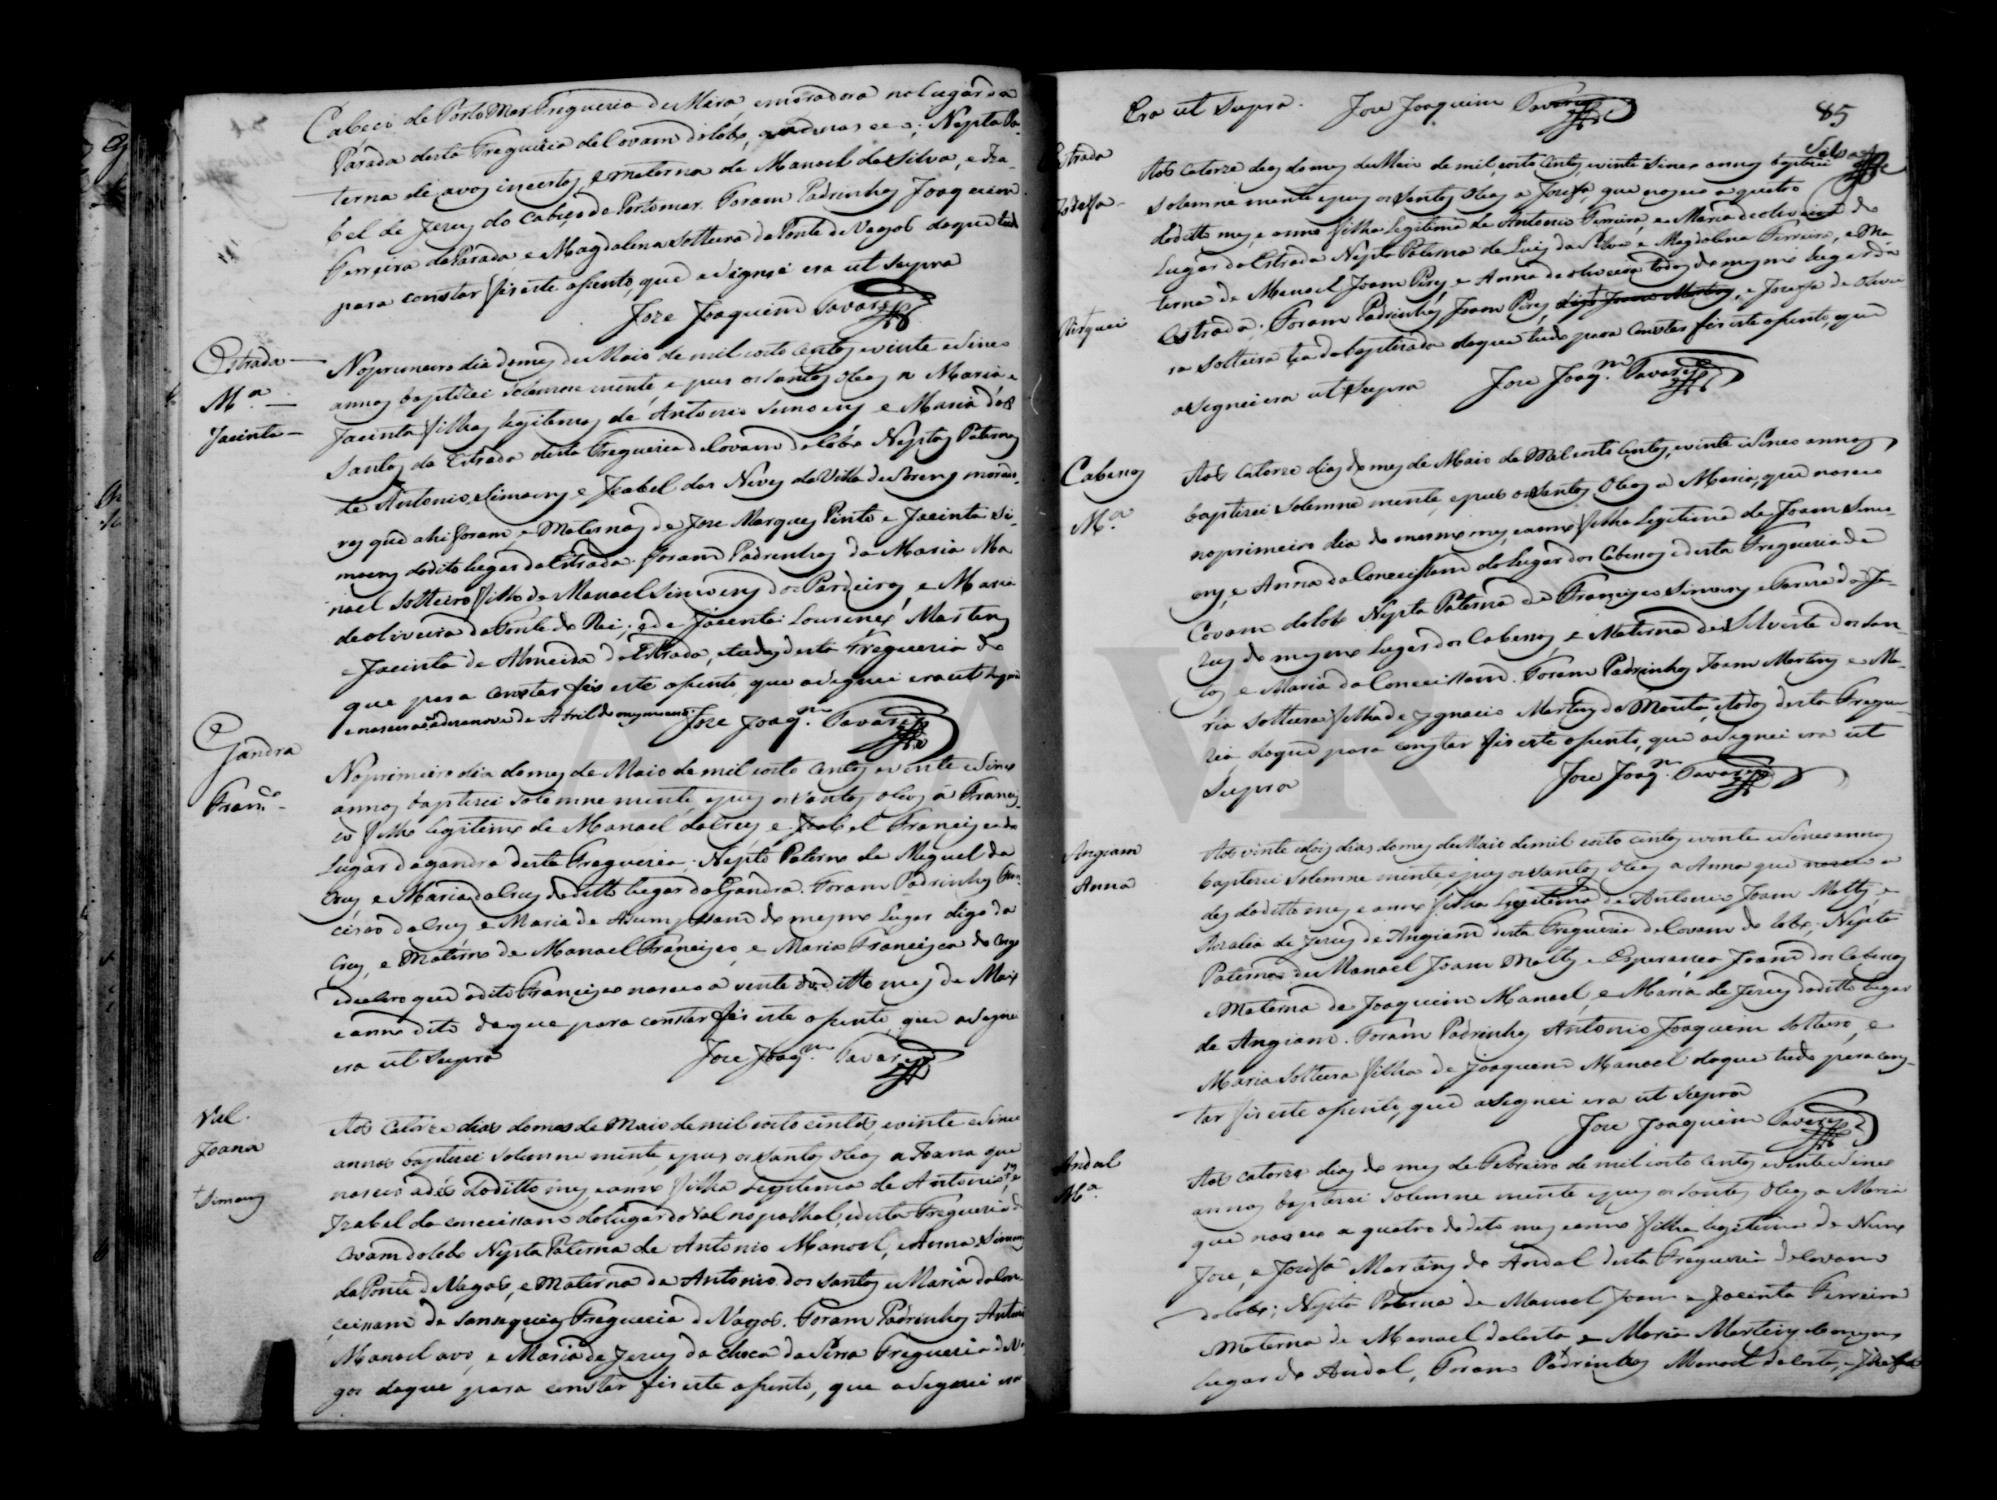 Cabeco de Porto Mar Freguezia de Mira, e moradora no lugar da
Parada desta Freguezia de Covam do lobo, Nepta Pa-
terna de avos incertos, e materna de Manoel da Silva, e Iza-
bel de Jezuz do Cabeço de Portomar. Foram Padrinhos Joaquim
Ferreira da Parada, e Magdalena solteira da Ponte de Vagos doque tudo
para constar fis este asento, que asignei era ut supra
Joze Joaquim Tavares
Estrada
M.ª
Jacinta
No primeiro dia do mes de Maio de mil oito centos e vinte e sinco
annos baptizei solemne mente, e pus os santos oleos a Maria e
Jacinta filhas legitimas de Antonio Simoens e Maria dos
Santos da Estrada desta Freguezia de Covam do lobo Neptas Paternas
de Antonio Simoens, e Izabel das Neves da Villa de morado-
res que ahi foram, e Maternas de Joze Marques Pinto e Jacinta Si-
moens do dito lugar da Estrada. Foram Padrinhos da Maria Ma-
noel solteiro filho de Manoel Simoens dos Pardeiros, e Maria
de oliveira da Fonte do Rei; e de Jacinta Lourenço Martins
e Jacinta de Almeida da Estrada, e todos desta Freguezia do
que para constar fis este asento, que asignei era ut supra
e nasceram a dezanove de Abril do mesmo anno. Joze Joaq.m Tavares
Gandra
Fran.co
No primeiro dia do mes de Maio de mil oito centos e vinte e sinco
annos baptizei solemne mente, e pus os santos oleos a Francis-
co filho legitimo de Manoel da Cruz e Izabel Francisca do
Lugar da gandra desta Freguezia. Nepto Paterno de Miguel da
Cruz, e Maria da Cruz do ditto lugar da Gandra. Foram Padrinhos Fran-
cisco da Cruz e Maria de Asumpssam do mesmo Lugar digo da
Cruz, e Materno de Manoel Francisco, e Maria Francisca do
e declaro que o dito Francisco nasceo a vinte do ditto mes de Maio
e anno dito doque para constar fis este asento, que asignei
era ut supra Joze Joaq.m Tavares
Val.
Joana
Simoens
Aos catorze dias do mes de Maio de mil oito centos, e vinte e sinco
annos baptizei solemne mente, e pus os santos oleos a Joana que
nasceo a dés do ditto mes, e anno filha legitima de Antonio
Izabel da conceissam do lugar do Val no palhal, desta Freguezia de
Covam do lobo Nepta Paterna de Antonio Manoel, e Anna Simoens
da Ponte de Vagos, e Materna de Antonio dos santos e Maria da Con-
ceissam de Sanxequias Freguezia de Vagos. Foram Padrinhos Antonio
Manoel avo, e Maria de Jezus da choca da Serra Freguezia de Va-
gos doque para constar fis este asento, que asignei era
85
Silva
Era ut supra. Joze Joaquim Tavares
Estrada
Jozefa
Aos catorze dias do mes de Maio de mil, oito centos, e vinte sinco annos baptizei
solemne mente e pus os santos oleos a Jozefa, que nasceo a quatro
do ditto mes, e anno filha legitima de Antonio Ferreira, e Maria de oliveira do
Lugar da Estrada Nepta Paterna de Luis da Silva e Magdalena Ferreira, e Ma-
terna de Manoel Joam Pires, e Anna de oliveira todos do mesmo lugar da
Estrada. Foram Padrinhos Joam Pires, digo Joam Martins, e Jozefa de Olivei-
ra solteira tia da baptizada doque tudo para constar fis este asento, que
asignei era ut supra Joze Joaq.m Tavares
Cabenos
M.ª
Aos catorze dias do mes de Maio de Mil oito centos, e vinte e sinco annos
baptizei solemne mente, e pus os santos oleos a Maria, que nasceo
no primeiro dia do mesmo mes, e anno filha Legitima de Joam Simo-
ens, e Anna da Conceissam do Lugar dos Cabenos desta Freguezia de
Covam do lobo Nepta Paterna de Francisco Simoens, e Tereza de Je-
zus do mesmo Lugar dos Cabenos, e Materna de Silvestre dos san-
tos e Maria da Conceissam. Foram Padrinhos Joam Martins e Ma-
ria solteira filha de Ignacio Martins da Mouta, e todos desta Fregue-
zia, doque para constar fis este asento, que asignei era ut
Supra Joze Joaq.m Tavares
Angiam
Anna
Aos vinte e dois dias do mes de Maio de mil oito centos e vinte e sinco annos
baptizei solemne mente, e pus os santos oleos a Anna que nasceo a
dez do ditto mes e anno filha Legitima de Antonio Joam Motty, e
Rozalia de Jezus de Angiam desta Freguezia de Covam do lobo; Nepta
Paterna de Manoel Joam Motty e Esperança Joam dos Cabenos
e Materna de Joaquim Manoel, e Maria de Jezus do ditto lugar
de Angiam. Foram Padrinhos Antonio Joaquim solteiro, e
Maria solteira filha de Joaquim Manoel doque tudo para cons-
tar fis este asento, que asignei era ut supra
Joze Joaquim Tavares
Andal
M.ª
Aos catorze dias do mes de Febreiro de mil oito centos e vinte e sinco
annos baptizei solemne mente e pus os santos oleos a Maria
que nasceo a quatro do dito mes e anno filha legitima de Nuno
Joze, e Jozefa Martins do Andal desta Freguezia de Covam
do lobo; Nepta Paterna de Manoel Joam e Jacinta Ferreira
Materna de Manoel da Costa, e Maria Martins do mesmo
lugar do Andal, Foram Padrinhos Manoel da Costa, e Jozefa